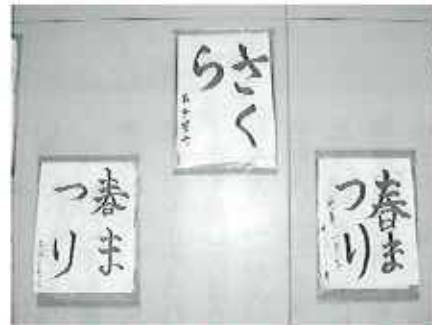 さく
ら
春ま
つり
春ま
つり